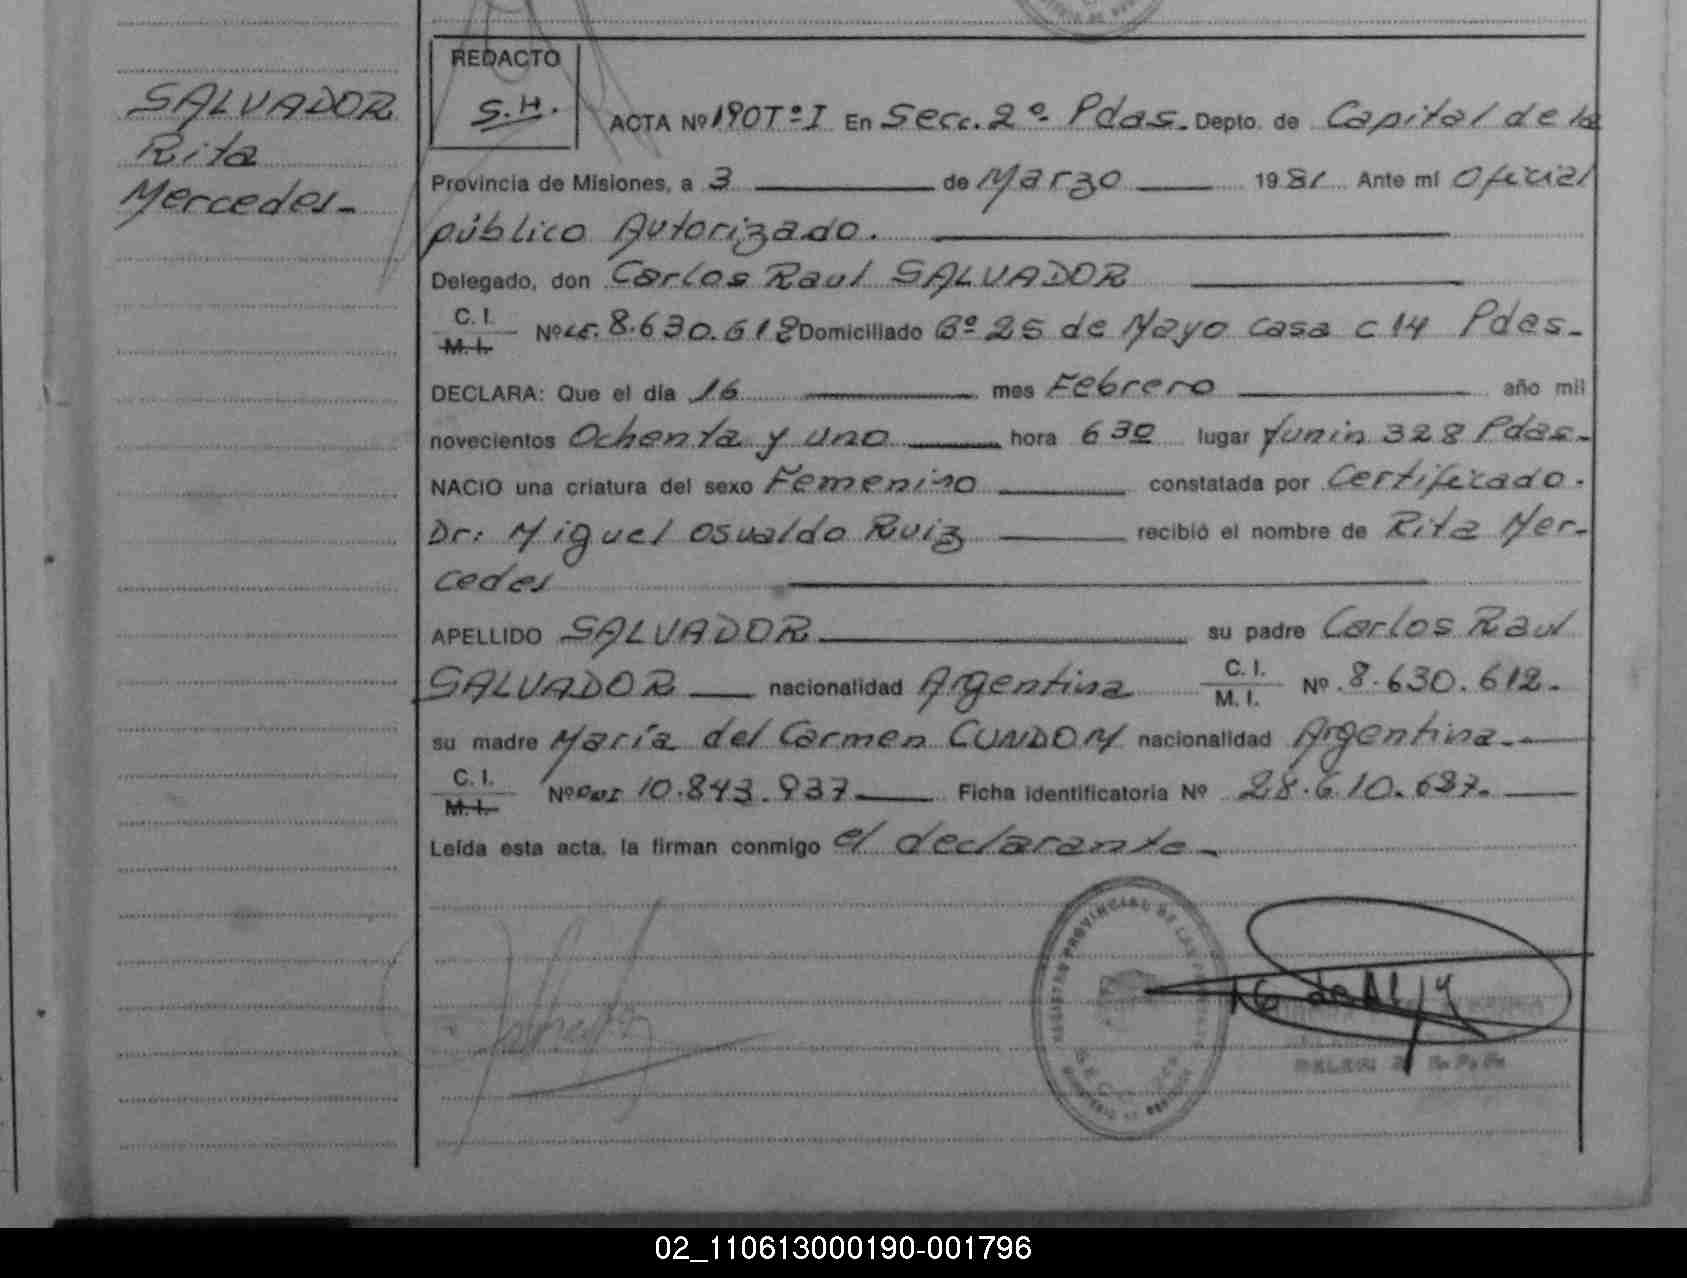 SALVADOR
Rita
Mercedes-
REDACTO
S.H.
ACTA Nº 190 Tº I En Secc. 2º Pdas. Depto. de Capital de la
Provincia de Misiones, a 3 de Marzo 1981 Ante mi Oficial
público Autorizado.
Delegado, don Carlos Raul SALVADOR
C. I.
M. I.
Nº LE. 8.630.612 Domiciliado Bº 25 de Mayo casa c 14 Pdas-
DECLARA: Que el día 16 mes Febrero año mil
novecientos Ochenta y uno hora 6 30 lugar Junin 328 Pdas-
NACIO una criatura del sexo Femenino constatada por Certificado.
Dr: Miguel Osvaldo Ruiz recibió el nombre de Rita Mer-
cedes
APELLIDO SALVADOR su padre Carlos Raul
SALVADOR nacionalidad Argentina C. I.
M. I. Nº 8.630.612.
su madre María del Carmen CUNDOM nacionalidad Argentina.-
C. I.
M. I.
Nº DNI 10.843.937 Ficha identificatoria Nº 28.610.687.
Leída esta acta, la firman conmigo el declarante-
02_110613000190-001796